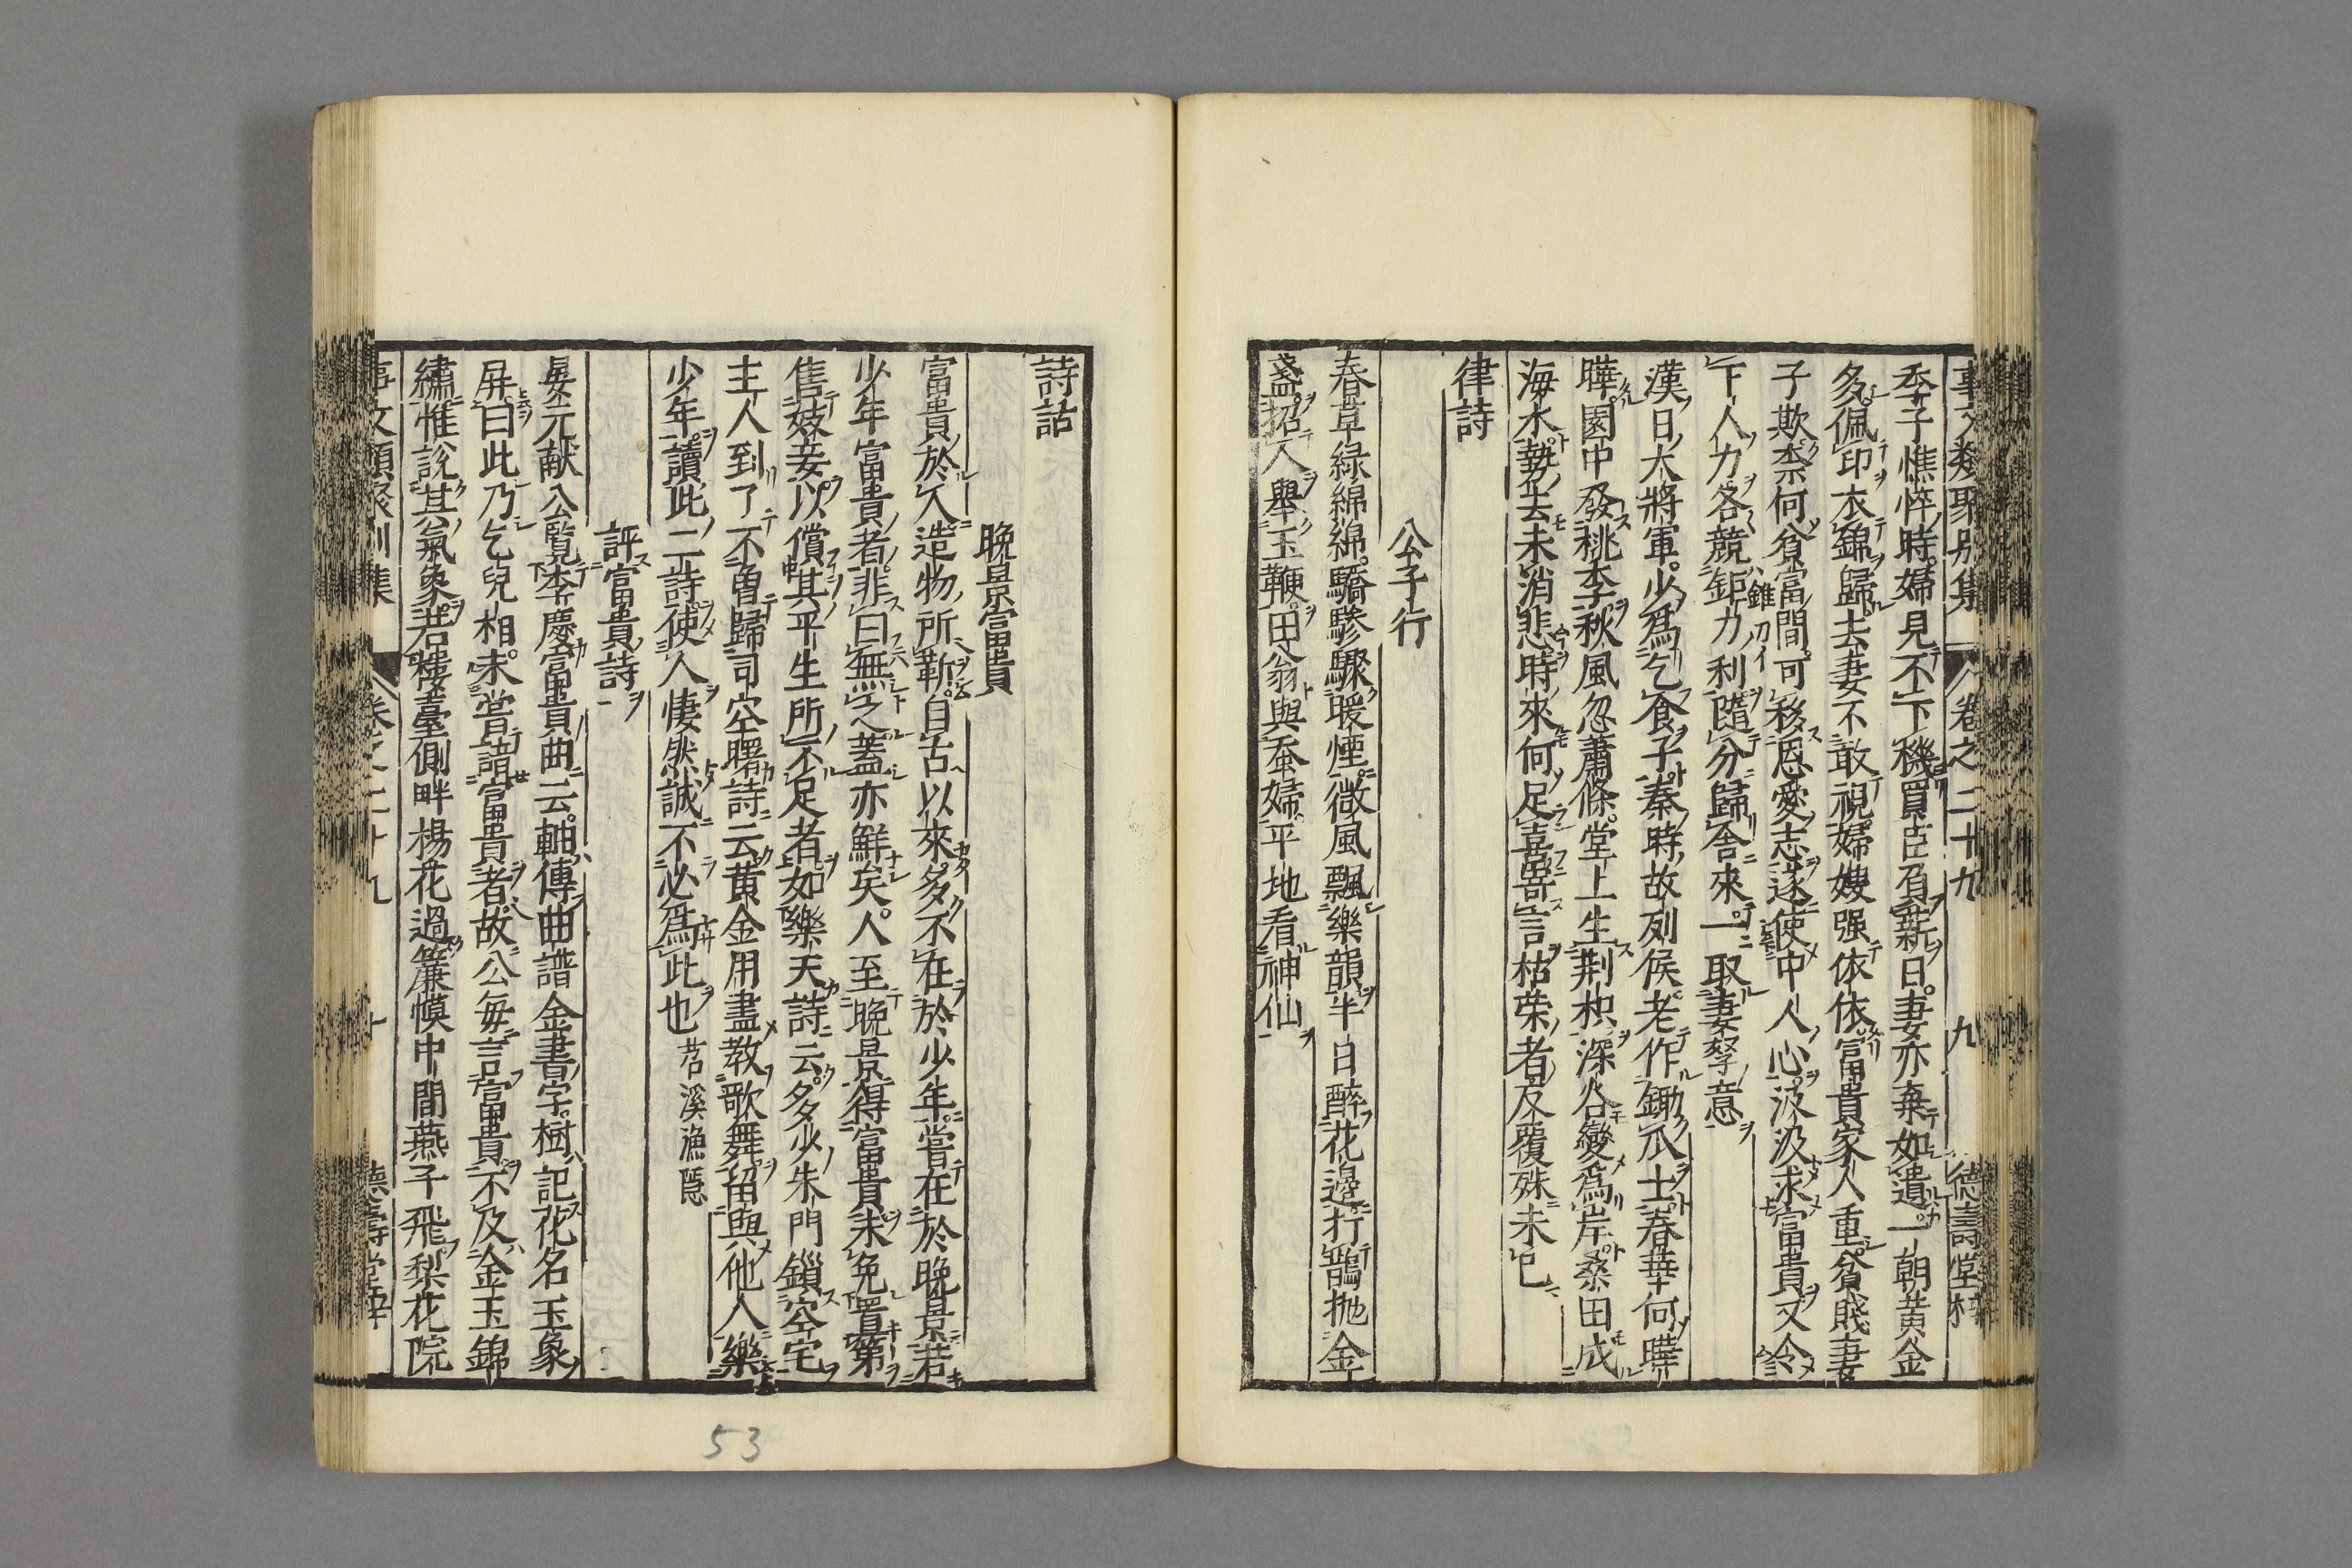 事文類聚別集 卷之二十九 九 德壽堂梓
季子憔悴時。婦見不下機買臣負薪日。妻亦棄如遺。一朝黄金
多。佩印衣錦歸去妻不敢視。婦嫂强依依富貴家人重。貧賤妻
子欺。柰何貧富間。可移恩愛志遂使中人心。汲汲求富貴又令
下人力各競錐刀利隨分歸舍來。一取妻孥意
漢日大將軍。少爲乞食子。秦時故列侯。老作鋤瓜士。春華何暐
曄園中發桃李。秋風忽蕭條。堂上生荆枳。深谷變爲岸。桑田成
海水。勢去未消悲。時來何足喜。嘗言枯荣者。反覆殊未已
律詩
公子行
春草緑綿綿。驕驂驟暖煙。微風飄樂韻半日醉花邊。打鵲抛金
盞。招人舉玉鞭。田翁與蚕婦。平地看神仙
詩話
晩景富貴
富貴於人造物所靳。自古以來。多不在於少年。嘗在於晩景。若
少年富貴者。非曰無之。蓋亦鮮矣。人至晩景得富貴。未免置第
售妓妾以償其平生所不足者。如樂天詩云。多少朱門鎖空宅
主人到了不曾歸司空曙詩云。黄金用盡教歌舞。留與他人樂
少年。讀此二詩。使人悽然誠不必爲此也 苕溪漁隱
評富貴詩
晏元献公覧李慶富貴曲云。軸傳曲譜金書字。樹記花名玉篆
屏。曰此乃乞兒相。未嘗諳富貴者。故公每言富貴。不及金玉錦
繡。惟說其氣象。若樓臺側畔楊花過簾幙中間燕子飛。梨花院
事文類聚別集 卷之二十九 十 德壽堂梓
53